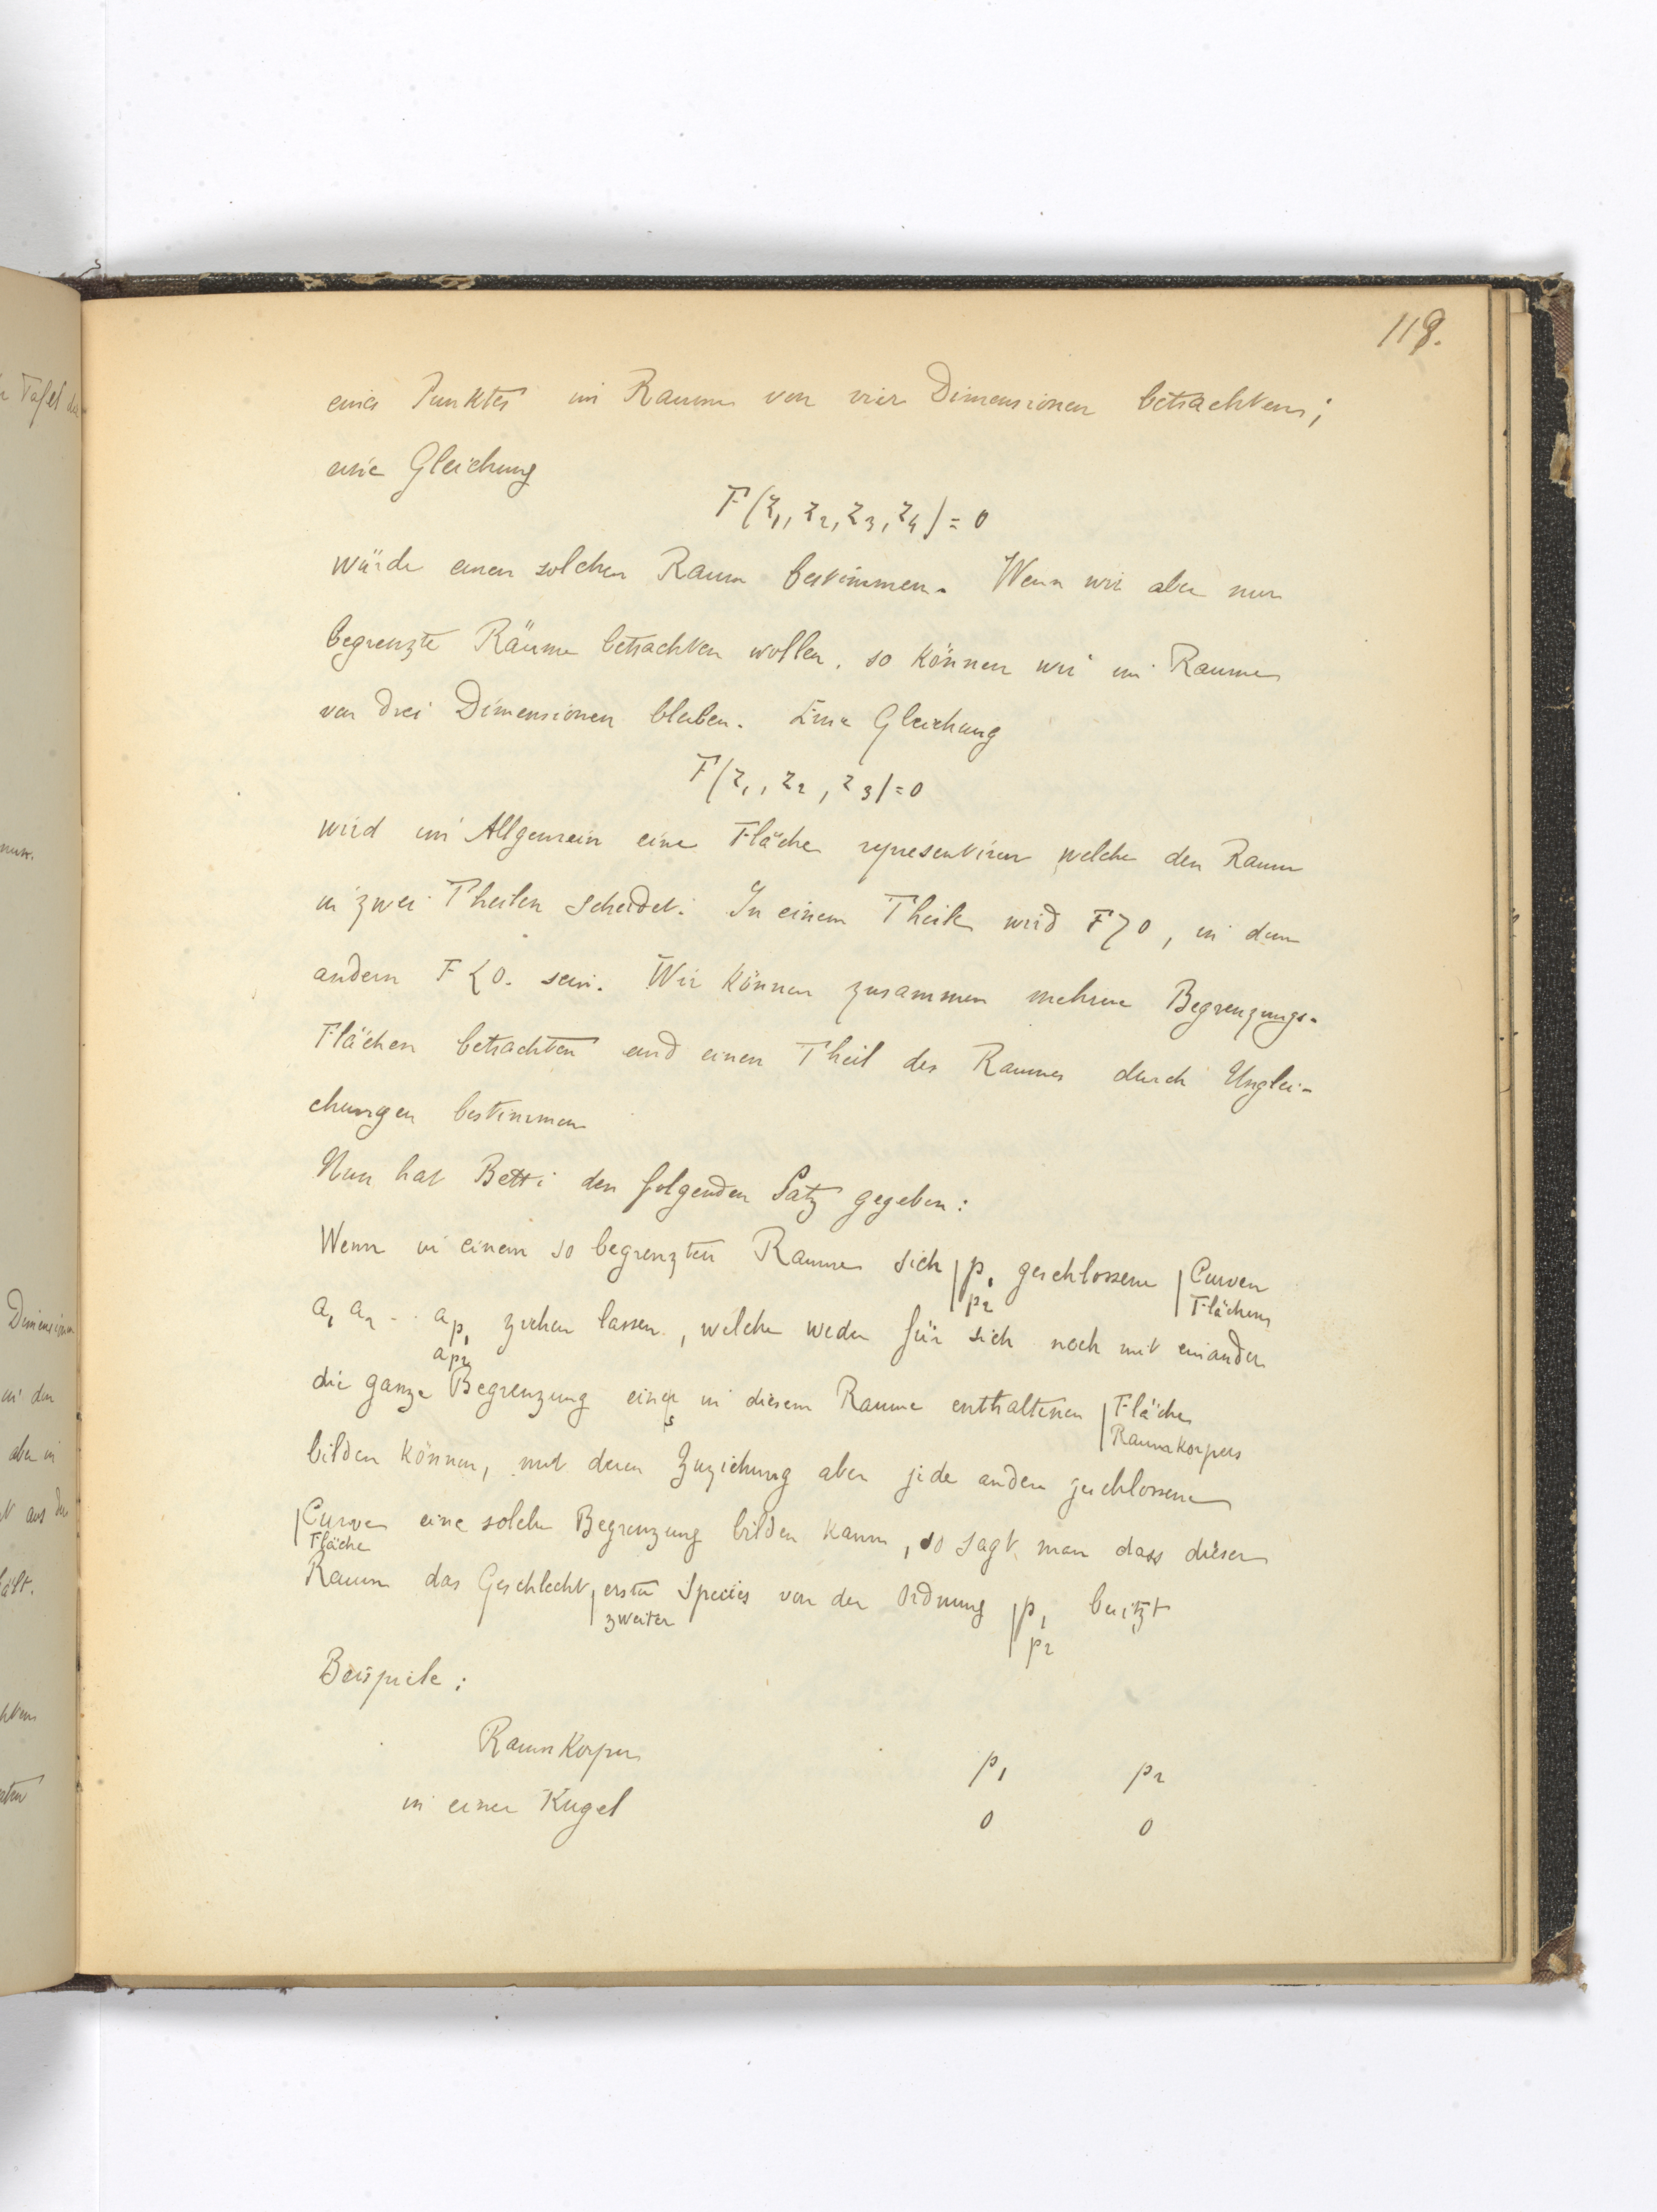 118.
eines Punktes im Raume von vier Dimensionen betrachten;
eine Gleichung
F(z1, z2, z3, z4) = 0
würde einen solchen Raum bestimmen. Wenn wir aber nur
begrenzte Räume betrachten wollen, so können wir im Raume
von drei Dimensionen bleiben. Eine Gleichung
F(z1, z2, z3) = 0
wird im Allgemein eine Fläche representiren welche den Raum
in zwei Theilen scheidet. In einem Theile wird F>0, in dem
andern F<0. sein. Wir können zusammen mehrere Begrenzungs-
Flächen betrachten und einen Theil des Raumes durch Unglei-
chungen bestimmen
Nun hat Betti den folgenden Satz gegeben:
Wenn in einem so begrenzten Raume sich | p1 geschlossene | Curven
p2 Flächen
a1 a2 -- ap1 ziehen lassen, welche weder für sich noch mit einander
ap2
die ganze Begrenzung einer in diesem Raume enthaltenen | Fläche
s Raumkorpers
bilden können, mit deren Zuziehung aber jede andere geschlossene
| Curve eine solche Begrenzung bilden kann, so sagt man dass dieser
Fläche
Raum das Geschlecht | erster Species von der Ordnung | p1 besitzt
zweiter p2
Beispiele:
Raumkorper p1 p2
in einer Kugel 0 0
r Tafel
nun.
Dimension
in den
aber in
aus